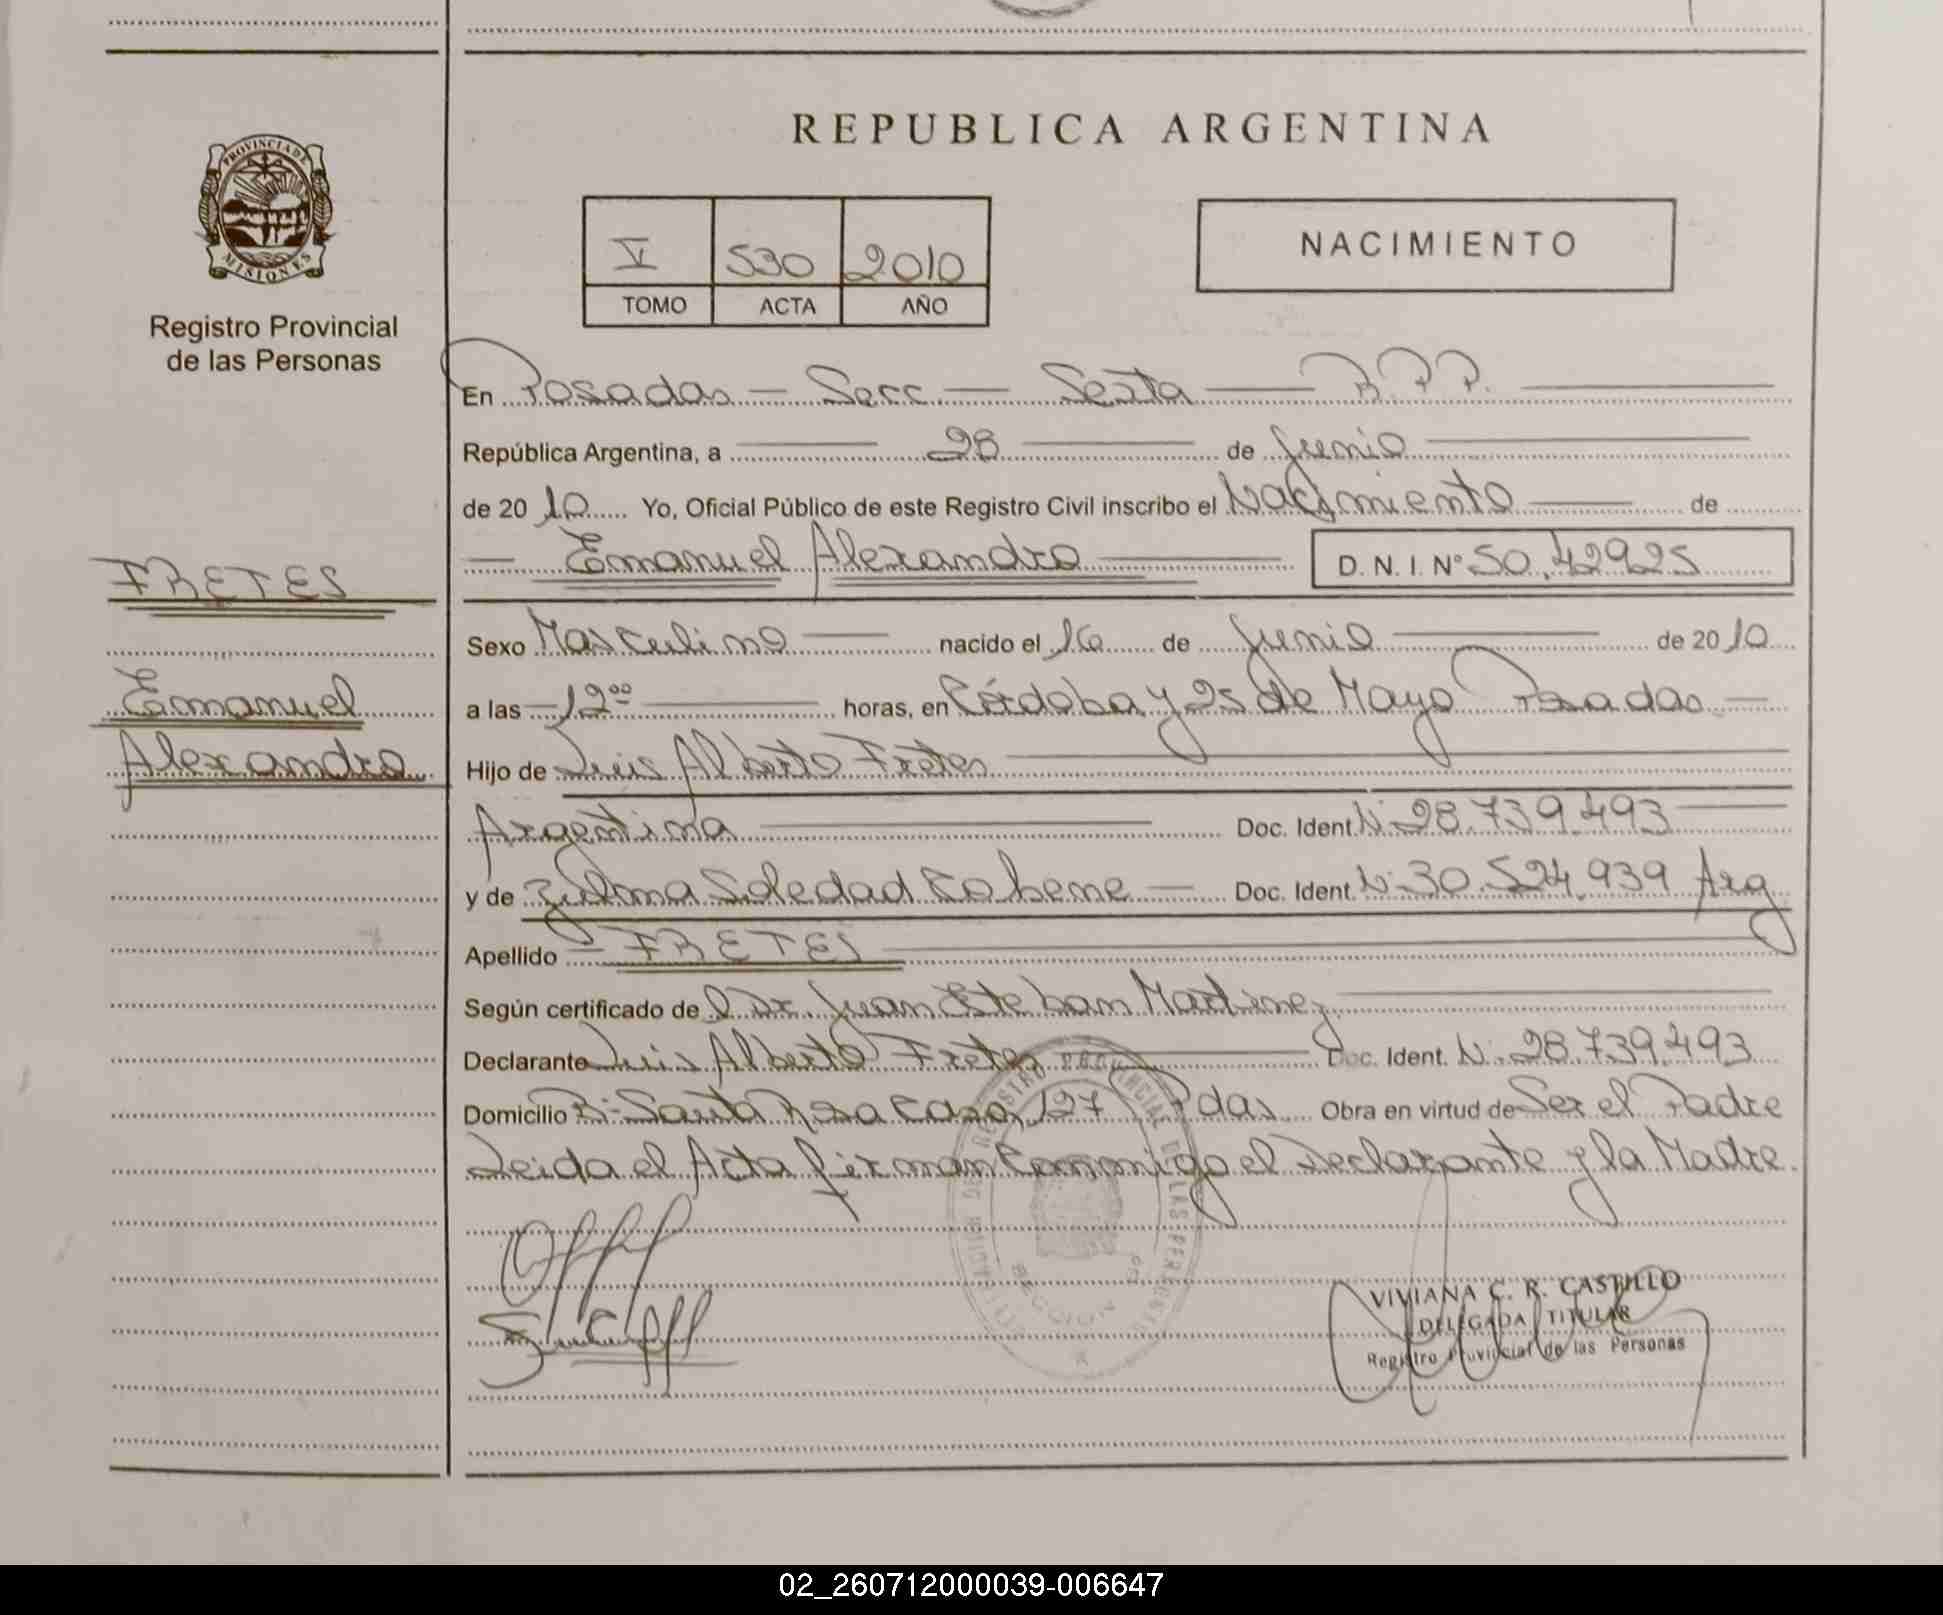 REPUBLICA ARGENTINA
PROVINCIA DE
MISIONES
Registro Provincial
de las Personas
V 530 2010
TOMO ACTA AÑO
NACIMIENTO
En Posadas — Secc. — Sexta — R.P.P.
República Argentina, a 28 de Junio
de 2010 Yo, Oficial Público de este Registro Civil inscribo el Nacimiento de
Emanuel Alexandro D. N. I. Nº 50.42925
FRETES
Emanuel
Alexandro
Sexo Masculino nacido el 16 de Junio de 2010
a las 12⁰⁰ horas, en Córdoba y 25 de Mayo Posadas
Hijo de Luis Alberto Fretes
Argentina Doc. Ident. Nº 28.739.493
y de Zulma Soledad Doc. Ident. Nº 30.524.939 Arg
Apellido FRETES
Según certificado del Dr. Juan Esteban Martinez
Declarante Luis Alberto Fretes Doc. Ident. Nº 28.739.493
Domicilio Bº Santa Rosa Casa 127 Pdas Obra en virtud de Ser el Padre
Leida el Acta firman Conmigo el Declarante y la Madre.
REGISTRO PROVINCIAL DE LAS PERSONAS
SECCION 6º
VIVIANA C. R. CASTILLO
DELEGADA TITULAR
Registro Provincial de las Personas
02_260712000039-006647